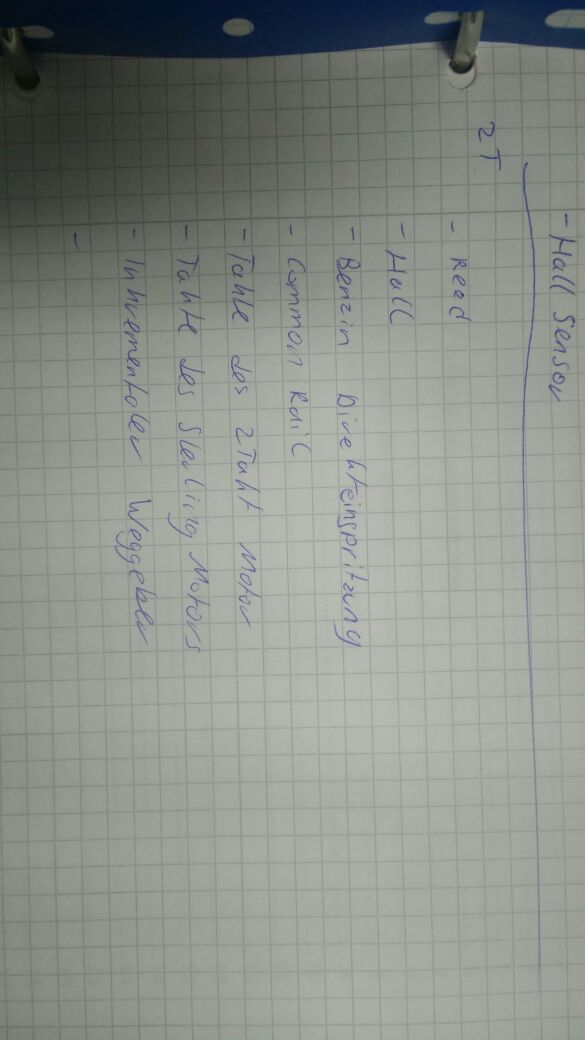 - Hall Sensor
2T
- Reed
- Hall
- Benzin Direkteinspritzung
- Common Rail
- Takte des 2Takt Motor
- Takte des Sterling Motors
- Inkrementaler Weggeber
-